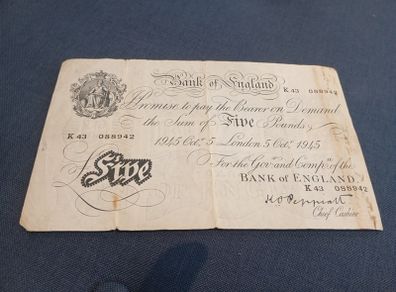 Bank of England
K 43 088942
Promise to pay the Bearer on Demand
the Sum of Five Pounds
K 43 088942
1945 Octr. 5 London 5 Octr. 1945
For the Govr. and Compa. of the
BANK OF ENGLAND
K 43 088942
Five
K O Peppiatt
Chief Cashier